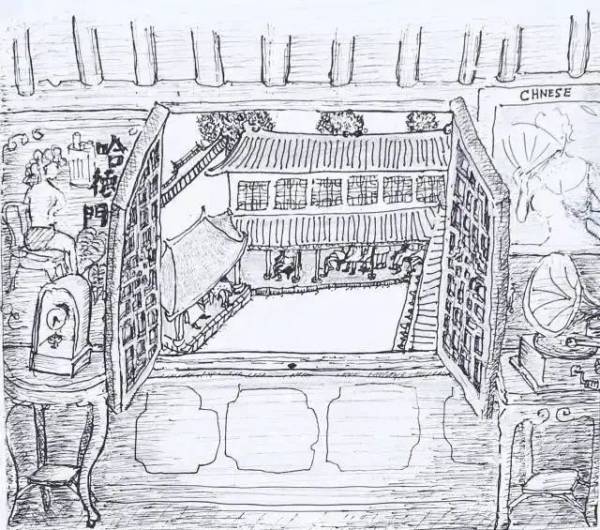 哈德門
CHNESE